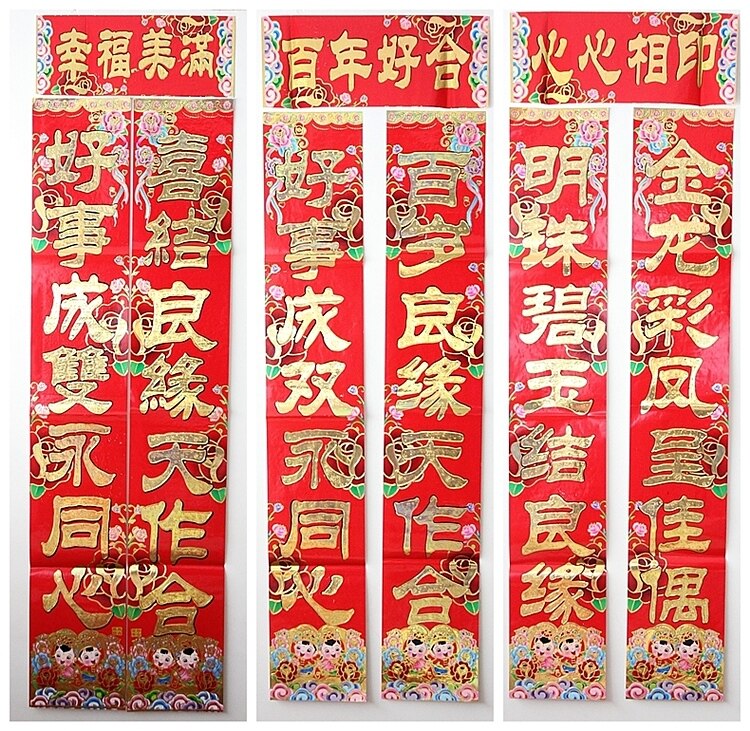 幸福美滿
喜結良緣天作合
好事成雙永同心
百年好合
百岁良缘天作合
好事成双永同心
心心相印
金龙彩凤呈佳偶
明珠碧玉结良缘